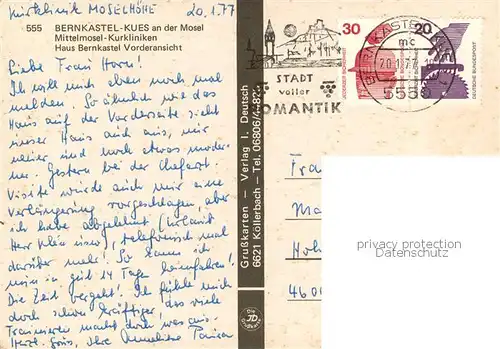 Kurklinik MOSELHÖHE 20.1.77
555 BERNKASTEL-KUES an der Mosel
Mittelmosel-Kurkliniken
Haus Bernkastel Vorderansicht
Liebe Frau Horn!
Ich will mich eben noch mal
melden. So ähnlich wie das
Haus auf der Vorderseite sieht
unser Haus auch aus, nur
neuer und noch etwas moder-
ner. Gestern bei der Chefarzt-
Visite wurde auch mir eine
Verlängerung vorgeschlagen, aber
ich habe abgelehnt (Urlaub
Herr) telefonisch mal
darüber mehr! So kann ich
nun in zeit 14 Tagen heimfahren!
Die Zeit vergeht! Ich fühle mich
doch schon kräftiger, das viele
Trainieren macht doch was aus.
Herzl. Grüße, Ihre Anneliese
Grußkarten - Verlag I. Deutsch
6621 Köllerbach - Tel. 06806/4482
Die JD Bildkarte
STADT
voller
ROMANTIK
BERNKASTEL-KUES
mc
20.1.77
5550
30
20
DEUTSCHE BUNDESPOST
DEUTSCHE BUNDESPOST
privacy protection
Datenschutz